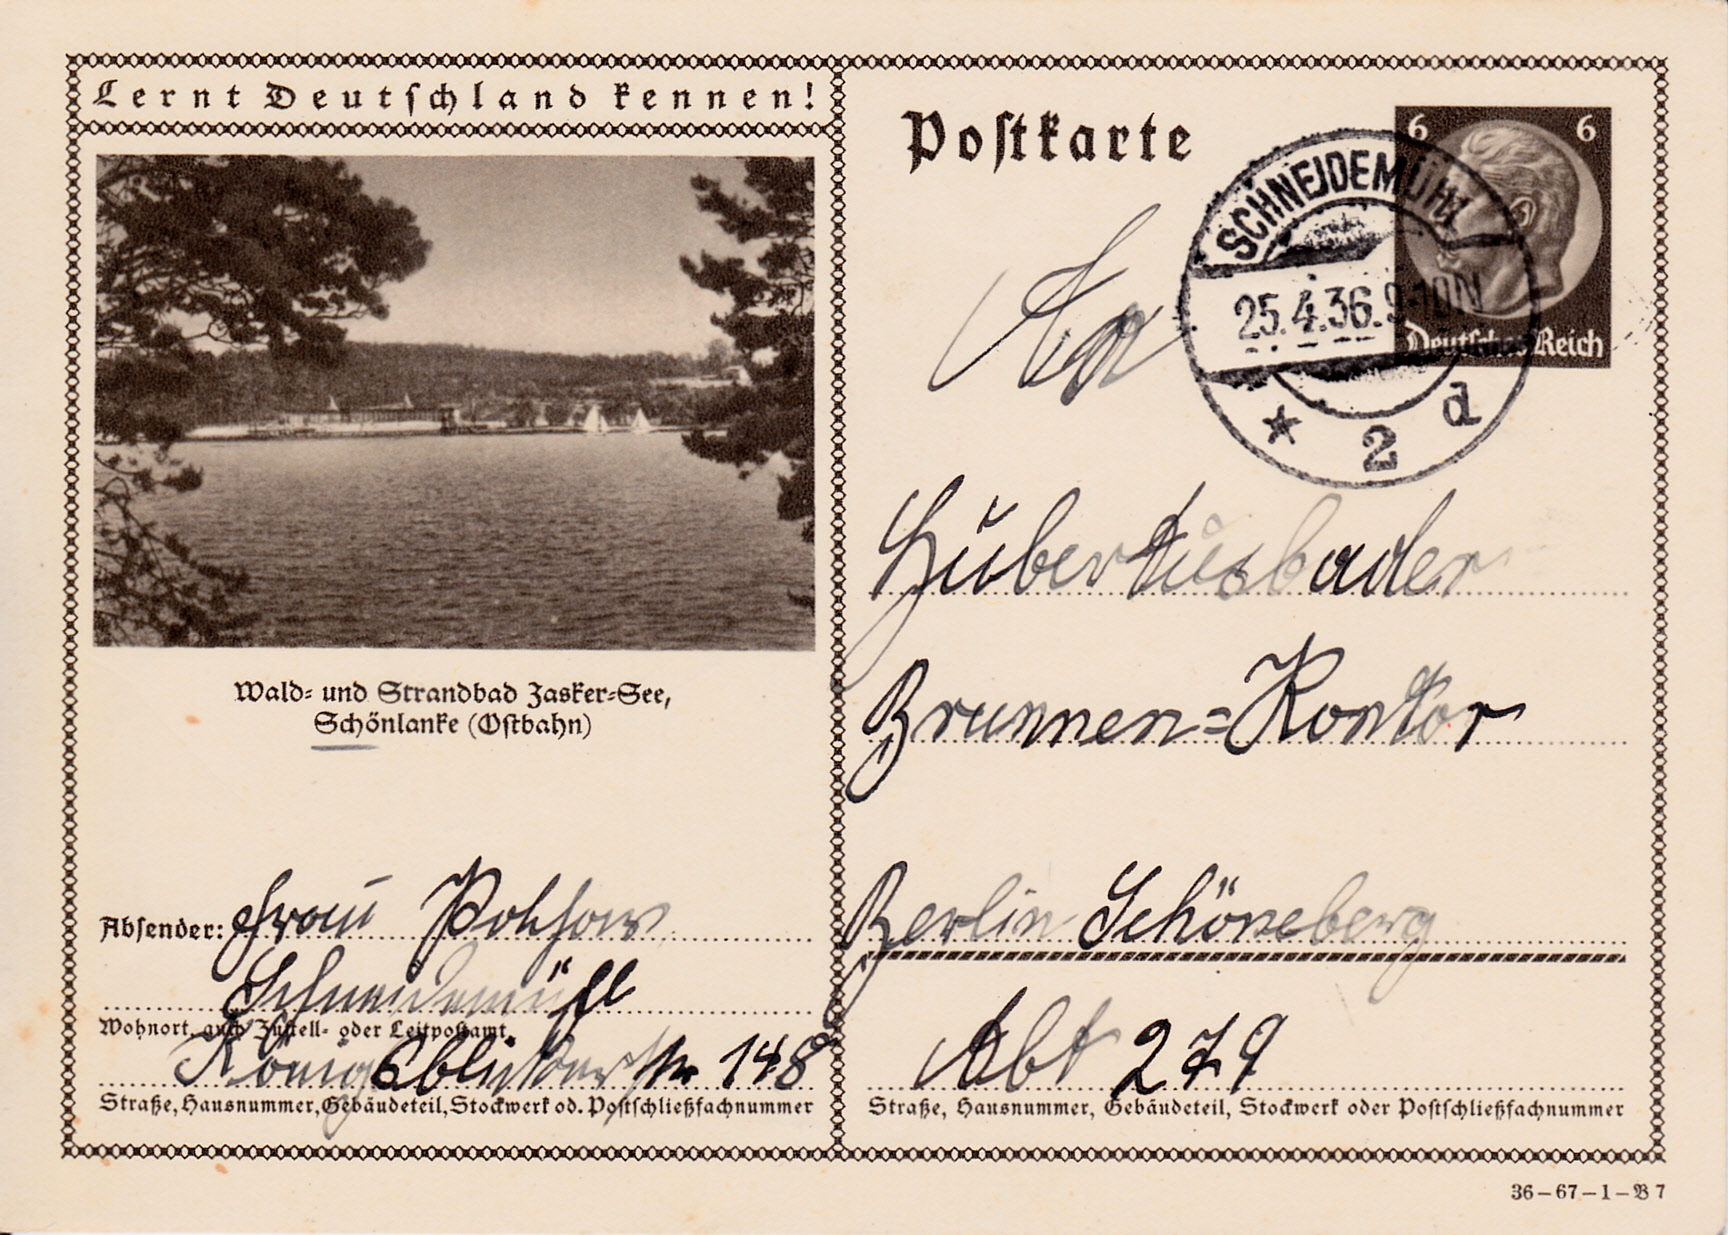 Lernt Deutschland kennen!
Wald- und Strandbad Zasker-See,
Schönlanke (Ostbahn)
Absender: Frau
Schneidemühl
Wohnort, auch Zustell- oder Leitpostamt
Königsblickerstr 148
Straße, Hausnummer, Gebäudeteil, Stockwerk od. Postschließfachnummer
Postkarte
6 6
Deutsches Reich
SCHNEIDEMÜHL
25.4.36.9-10N
* 2 d
An
Hubertusbader
Brunnen=Kontor
Berlin Schöneberg
Abt 279
Straße, Hausnummer, Gebäudeteil, Stockwerk oder Postschließfachnummer
36-67-1-B7